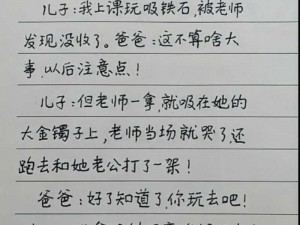 儿子:我上课玩吸铁石,被老师
发现没收了。爸爸:这不算啥大
事,以后注意点!
儿子:但老师一拿,就吸在她的
大金镯子上,老师当场就哭了还
跑去和她老公打了一架!
爸爸:好了知道了,你玩去吧!